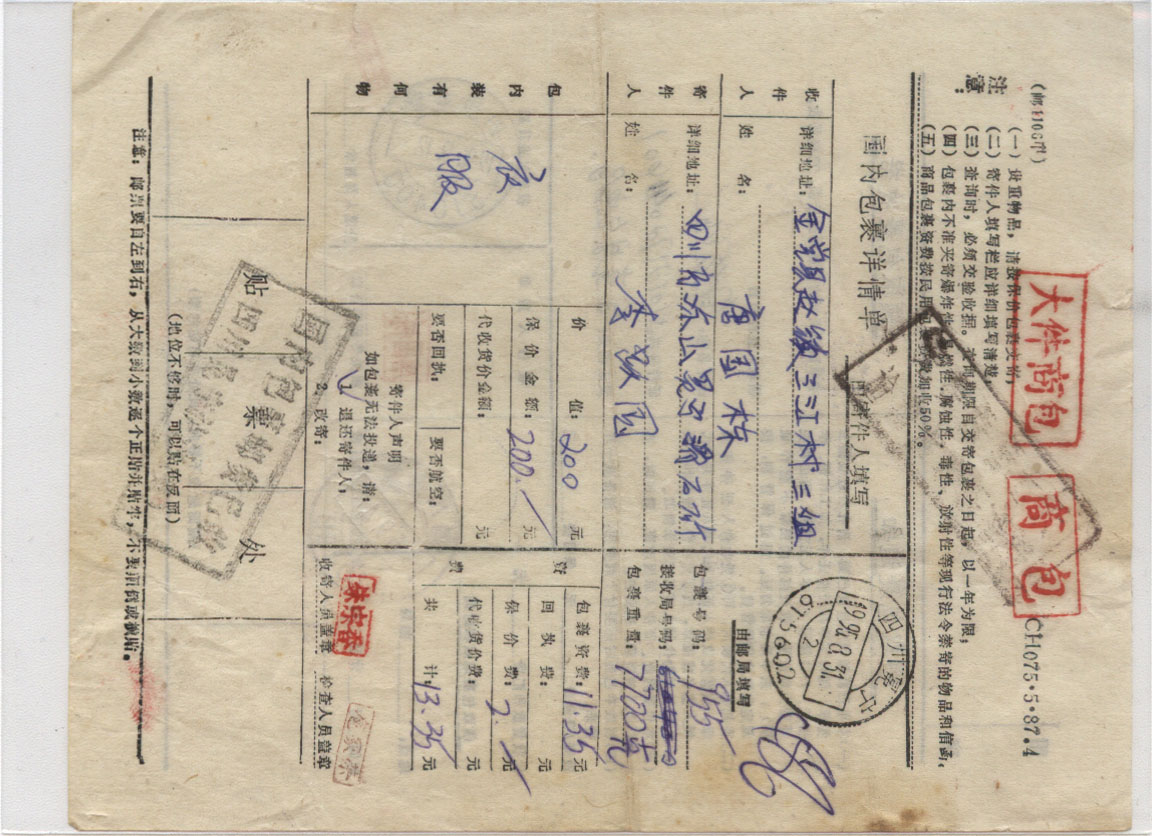 (邮1106甲)
大件商包
商包
CH075·5·87.4
注意：
(一) 贵重物品，请按保价包裹交寄；
(二) 寄件人填写栏应详细填写清楚
(三) 查询时，必须交验收据。查询期限自交寄包裹之日起，以一年为限；
(四) 包裹内不准夹寄爆炸性、易燃性、腐蚀性、毒性、放射性等现行法令禁寄的物品和信函；
(五) 商品包裹资费按民用包裹资费加收50%。
国内包裹详情单
由寄件人填写
收件人
详细地址：金堂县赵镇三江村三组
姓名：唐国栋
寄件人
详细地址：四川
姓名：李
包内装有何物
衣服
价值：200元
保价金额：200.元
代收货价金额：元
要否回执：
要否航空：
寄件人声明
如包裹无法投递，请：
1退还寄件人；
2.改寄：
四川
1988.8.31
2
615602
由邮局填写
包裹号码：955
接收局号码：
包裹重量：7700克
资费
包裹资费：11.35元
回执费：元
保价费：2.元
代收货价费：元
共计：13.35元
收寄人员盖章
朱宗香
检查人员盖章
贴票处
(地位不够时，可以贴在反面)
国内包裹邮资已收
注意：邮票要自左到右，从大数到小数逐个正贴并贴牢，不要颠倒或皱贴。